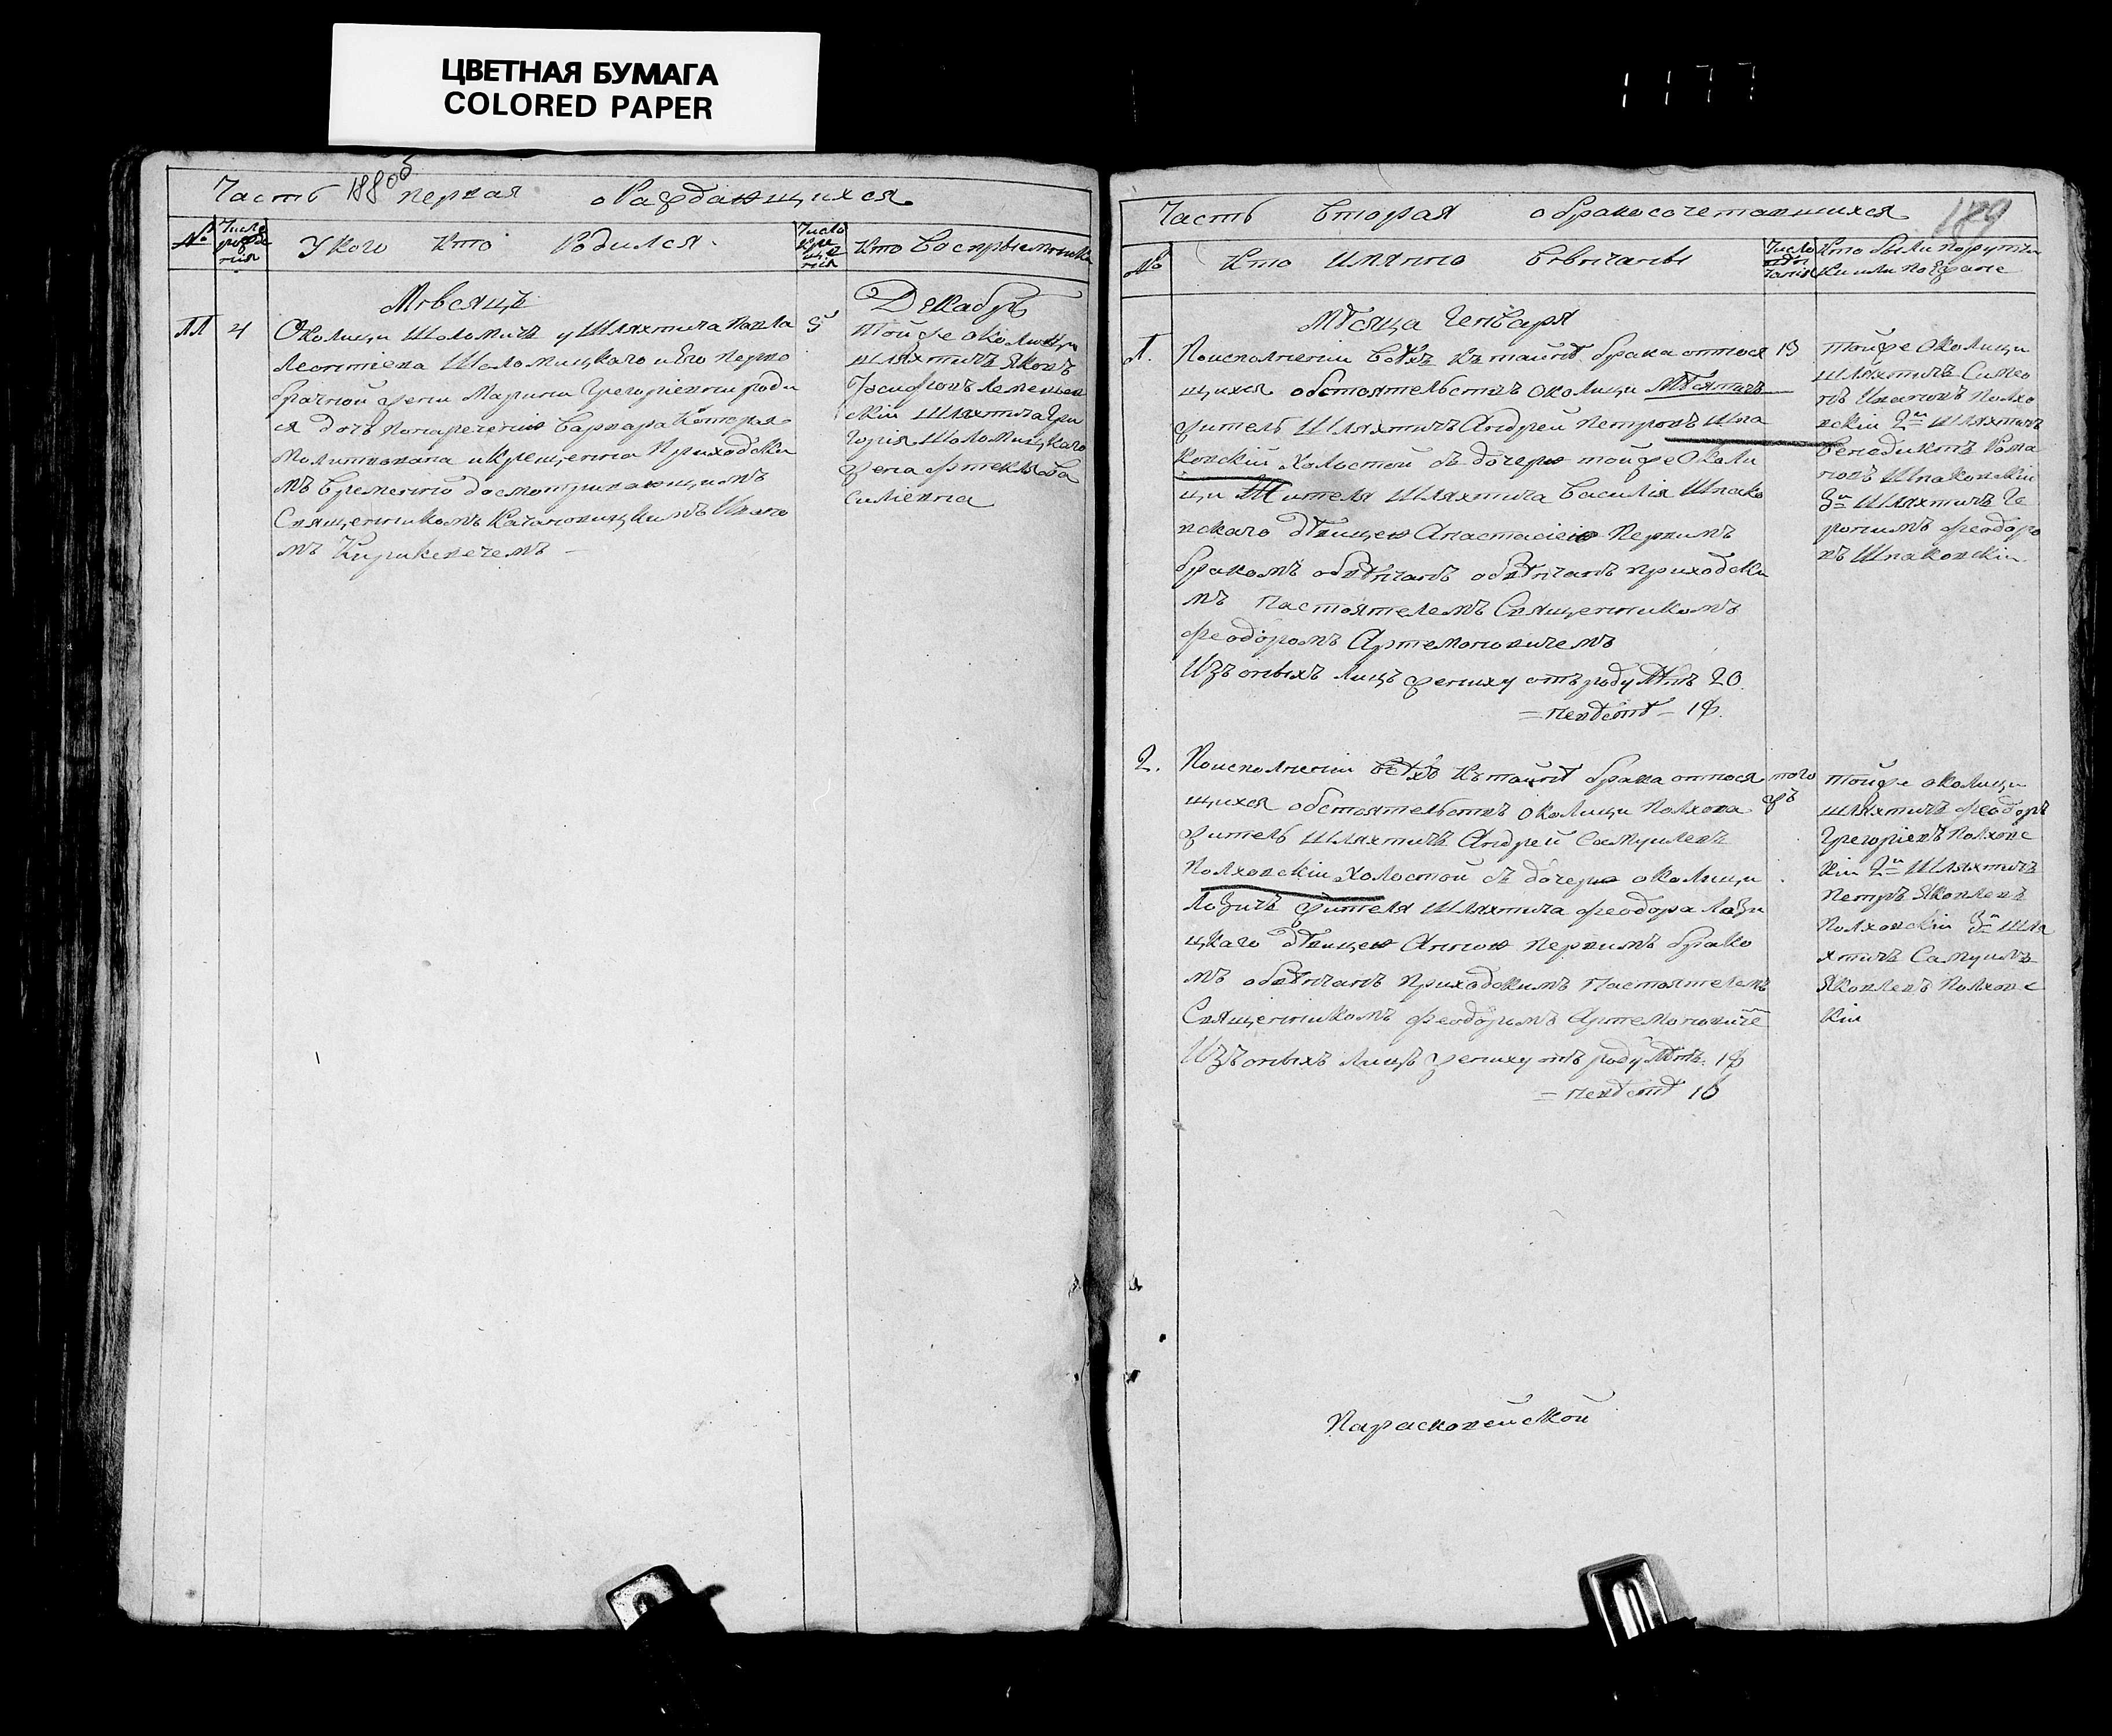 ЦВЕТНАЯ БУМАГА
COLORED PAPER
1177
Часть первая о Раждающихся
№ Число рожде нія У кого кто родился. Число кре ще нія Кто Воспріемники
Мѣсяцъ Декабрь
4
5
Околицы Шоломичъ у Шляхтича Павла
Леонтіева Шоломицкаго и Его перво
брачной жены Марины Григоріевны роди
ся дочь нонареченію Варвара Которая
Молитвована и крещенна Приходски
мъ временно досмотривающимъ
Священникомъ Качановицкимъ Ивано
мъ
той же околицы
шляхтичъ Яковъ
Іосифовъ
скій шляхтича Гри
горія Шоломицкаго
жена Фтекла Ва
силіевна
Часть вторая о бракосочетавшихся
189
№ Кто имянно Вѣнчаны Число вѣн чанія Кто были поручи
ки или поезжане
Мѣсяца Генваря
Поисполненіи всѣхъ къ тайнѣ брака относя
щихся обстоятельствъ околицы
житель Шляхтичъ Андрей Петровъ Шпа
ковскій Холостой съ дочерю той же Околи
цы Жителя Шляхтича Василія Шпако
вскаго дѣвицею Анастасіею Первымъ
бракомъ обвѣнчанъ обвѣнчанъ приходски
мъ Настоятелемъ Священникомъ
Феодоромъ Артемоновичемъ
Изъ оныхъ лицъ жениху отъ роду лѣтъ 20
= невѣстѣ -
той же Околицы
Шляхтичъ Симео
нъ Ивановъ Полхо
вскій 2й Шляхтичъ
Венедиктъ Рома
новъ Шпаковскій
3й Шляхтичъ Ге
ронимъ Феодоро
въ Шпаковскій
2. Поисполненіи всѣхъ къ тайнѣ брака относя
щихся обстоятельствъ околицы Полхова
житель шляхтичъ Андрей Самуилевъ
Полховскій Холостой съ дочерю околицы
Лозичъ жителя Шляхтича Феодора Лози
цкаго дѣвицею Анною Первымъ брако
мъ обвѣнчанъ Приходскимъ Настоятелемъ
Священникомъ Феодоромъ Артемоновиче
Изъ оныхъ лицъ жениху отъ роду лѣтъ:
= невѣстѣ 16
того
жъ
той же околицы
шляхтичъ Феодоръ
Григоріевъ Полховс
кій 2й Шляхтичъ
Петръ Яковлевъ
Полховскій 3й Шля
хтичъ Самуилъ
Яковлевъ Полховс
кій
Парасковейской